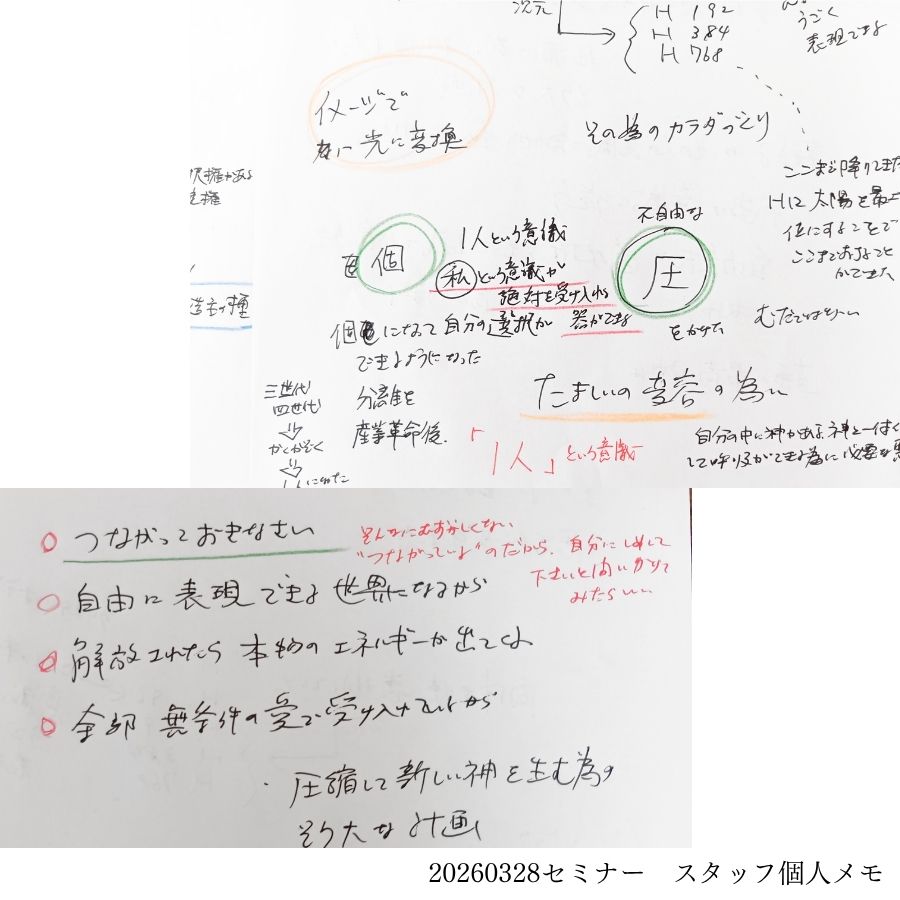 次元
H 192
H 384
H 768
うごく
表現できる
イメージで
光に変換
その為のカラダづくり
ここまで降りてきた
Hに太陽を最上
位にすることで
ここまでおすこと
ができた
択権がある
権
個
1人という意識
私という意識が
絶対を受け入れる
器ができる
不自由な
圧
をかけた
むだではない
個になって自分の選択が
できるようになった
三世代
四世代
かくかぞく
分離性を
産業革命後、
「1人」という意識
たましいの変容の為に
自分の中に神がある。神と一体
つながっておきなさい
そんなにむずかしくない
"つながっている"のだから、自分にしめして
下さいと問いかけて
みたらいい
自由に表現できる世界になるから
解放されたら本物のエネルギーが出てくる
全部 無条件の愛で受け入れているから
・圧縮して新しい神を生む為の
そう大な計画
20260328セミナー　スタッフ個人メモ